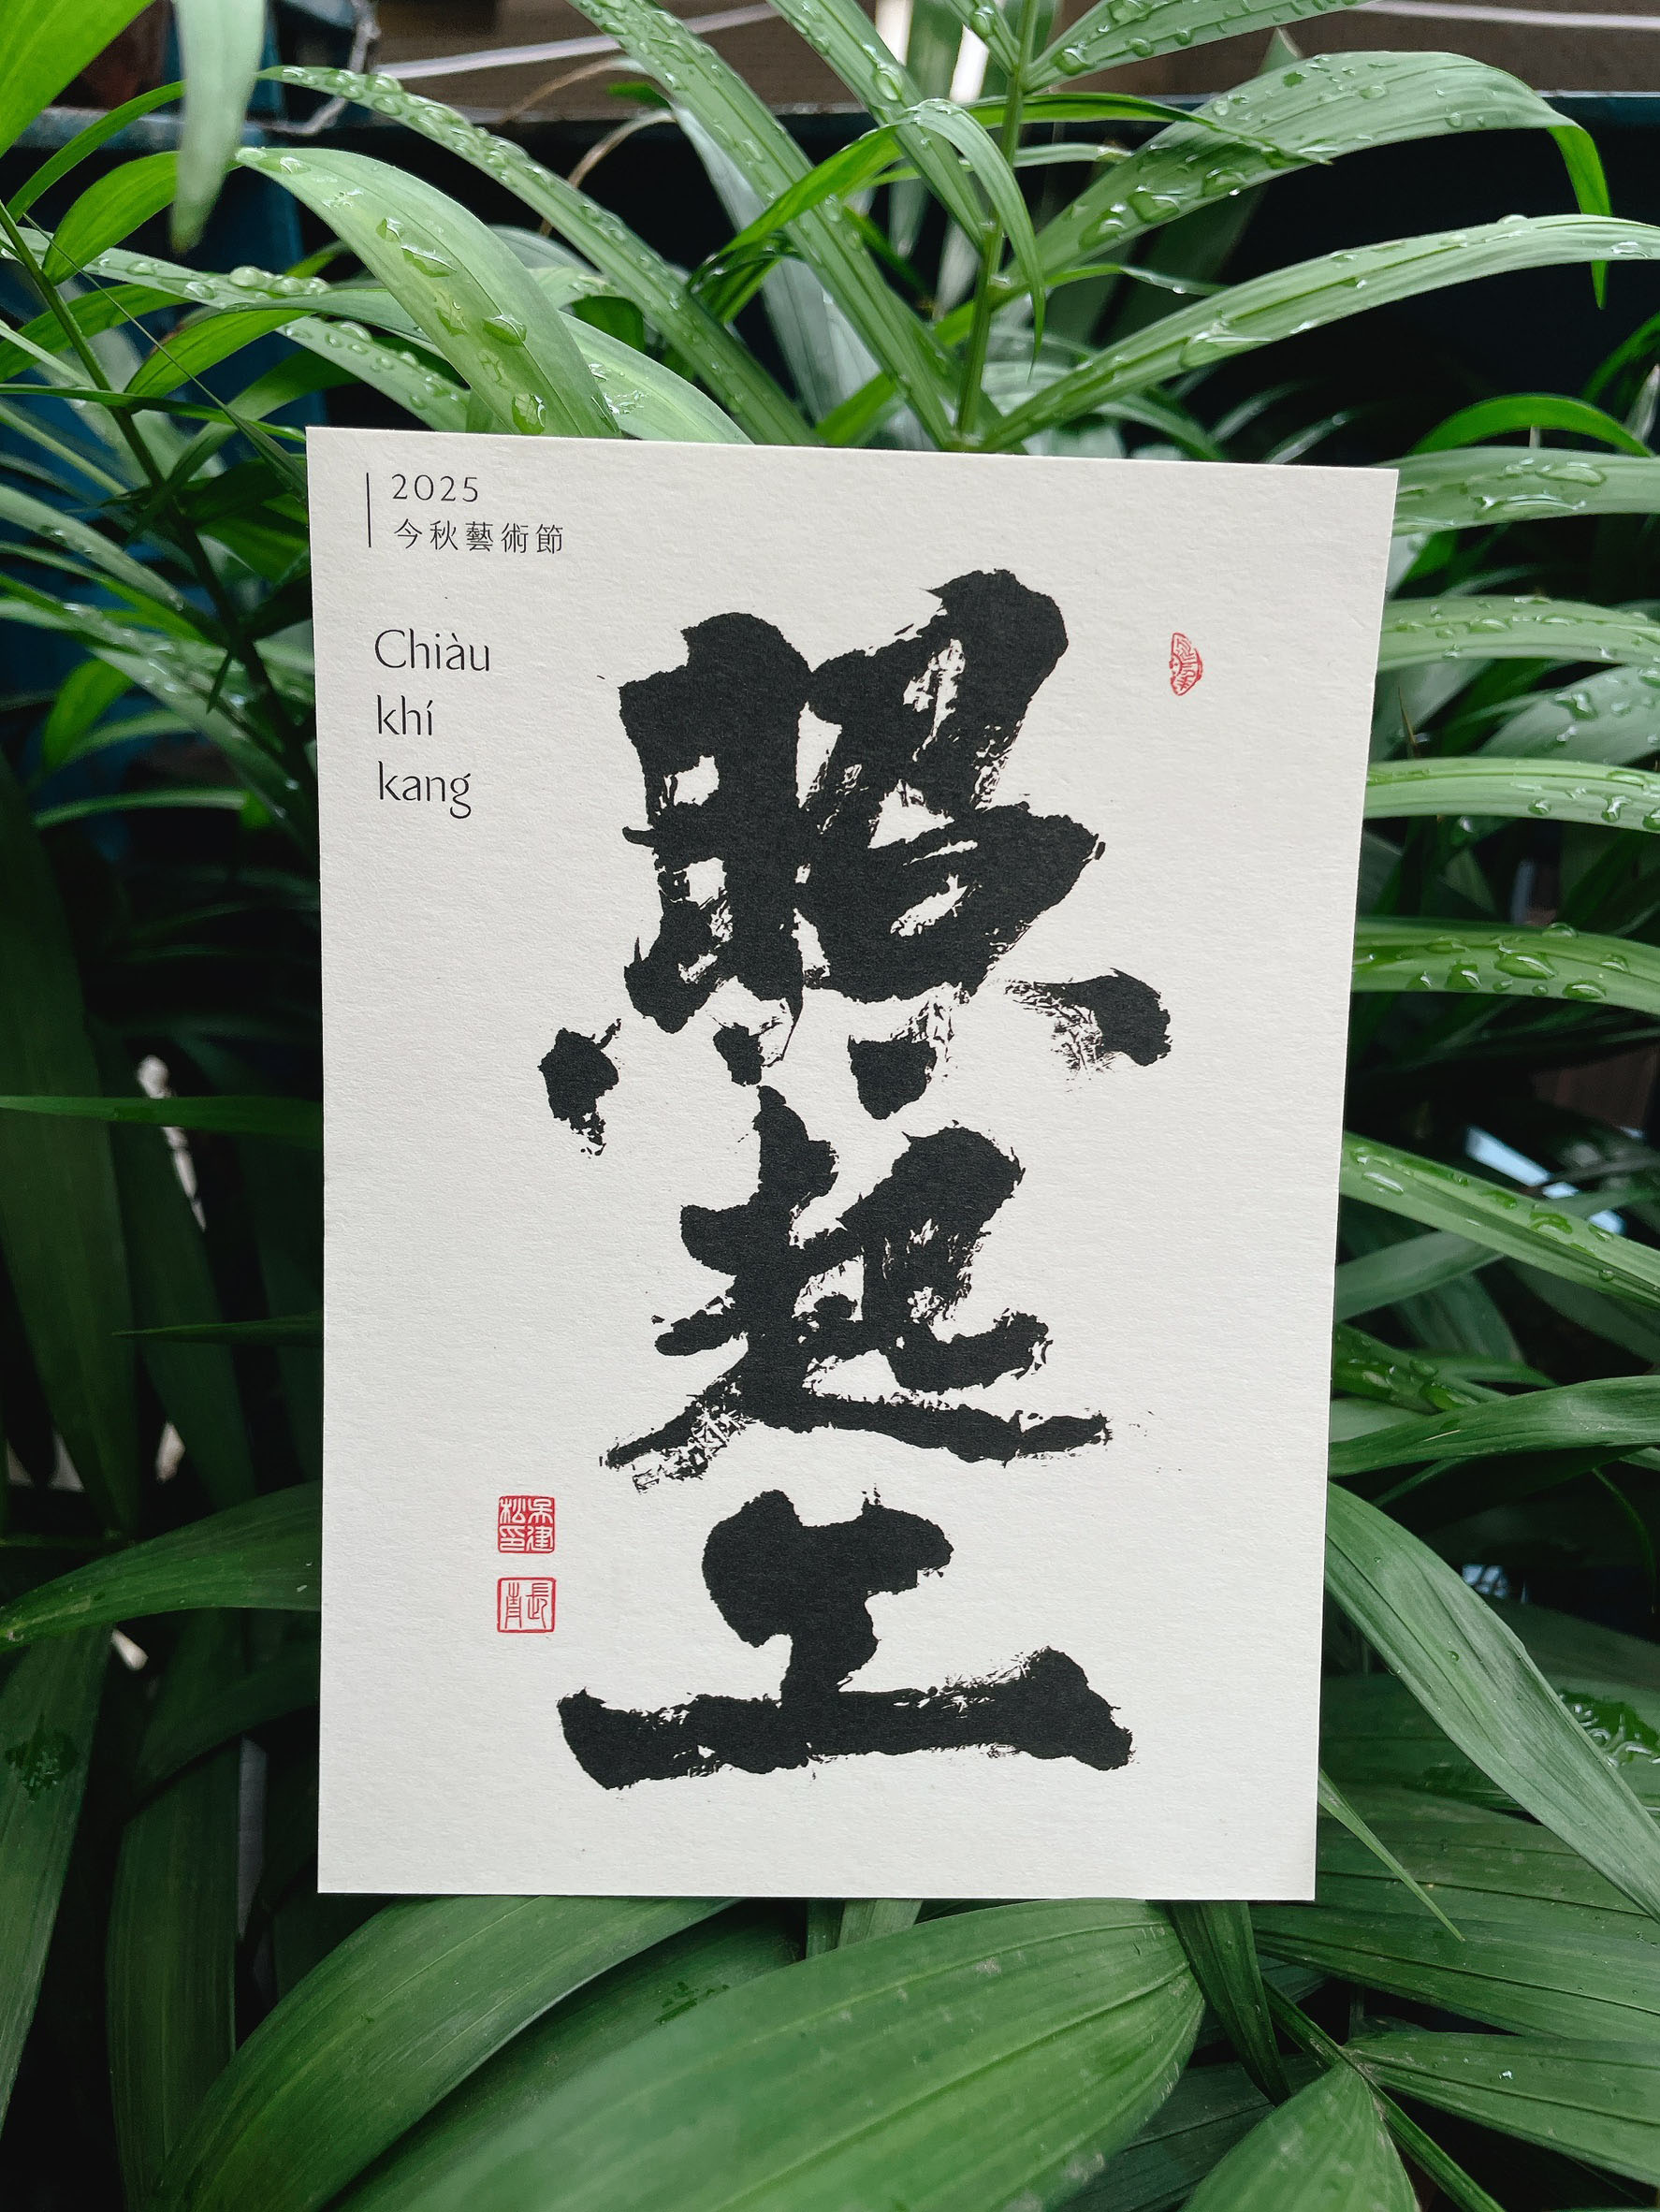 2025
今秋藝術節
Chiàu
khí
kang
照起工
吳建
松印
長青